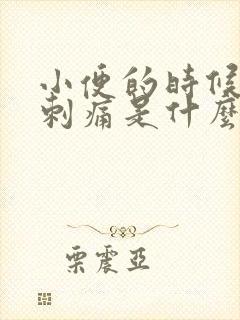 小便的時候
刺痛是什麼
栗震亞